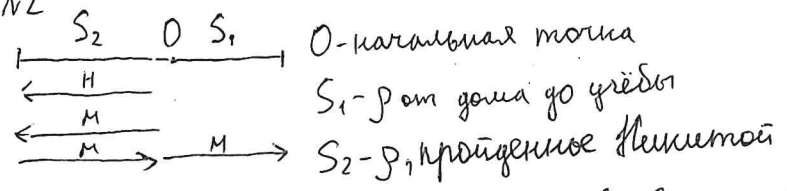 N2
S₂ O S₁
O - начальная точка
H
S₁ - ρ от дома до учёбы
M
M M
S₂ - ρ, пройденное Никитой